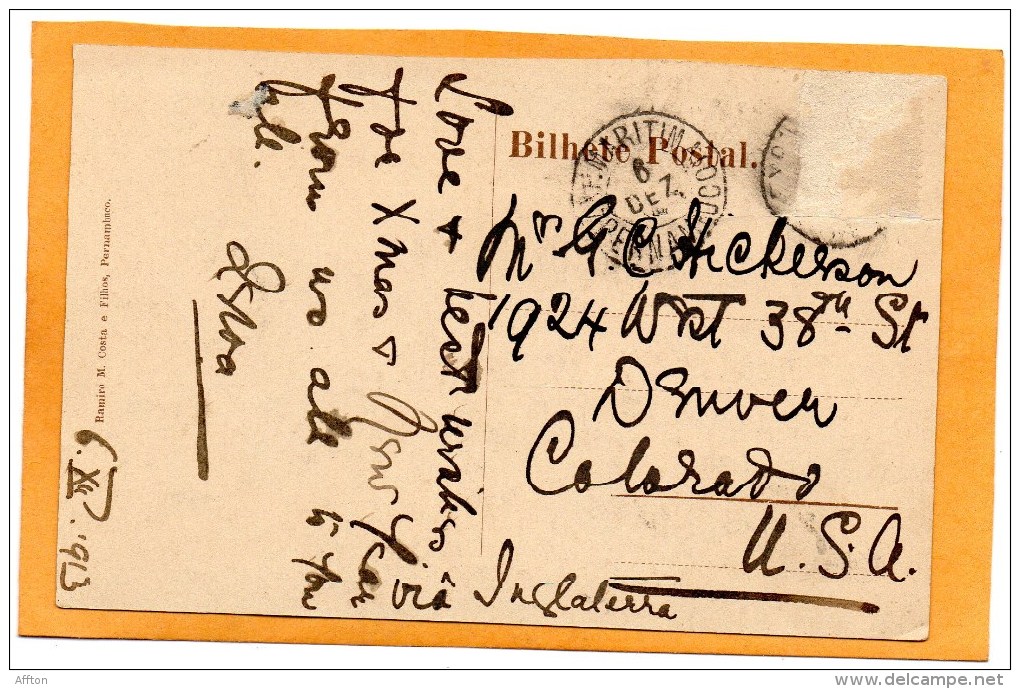 Bilhete Postal.
6
DEZ
PERNAMBUCO
Mrs G. C. Hickerson
1924 West 38th St
Denver
Colorado
U.S.A.
via Inglaterra
Love + best wishes
for Xmas + New Year
from us all to you
all.
6.XII.1913
Ramiro M. Costa e Filhos, Pernambuco.
Affton
delcampe.net